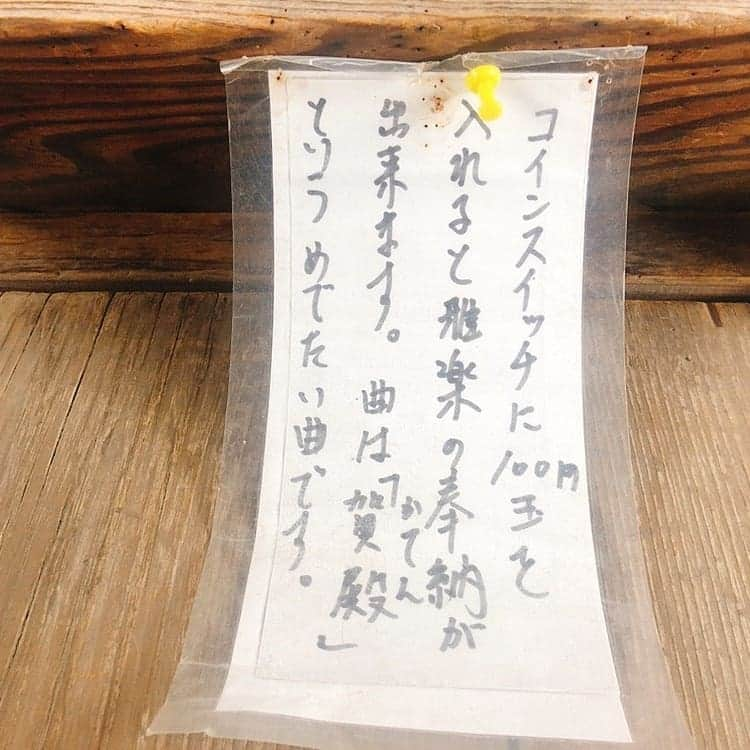 コインスイッチに100円玉を
入れると雅楽の奉納が
出来ます。曲は「賀殿」
かてん
というめでたい曲です。